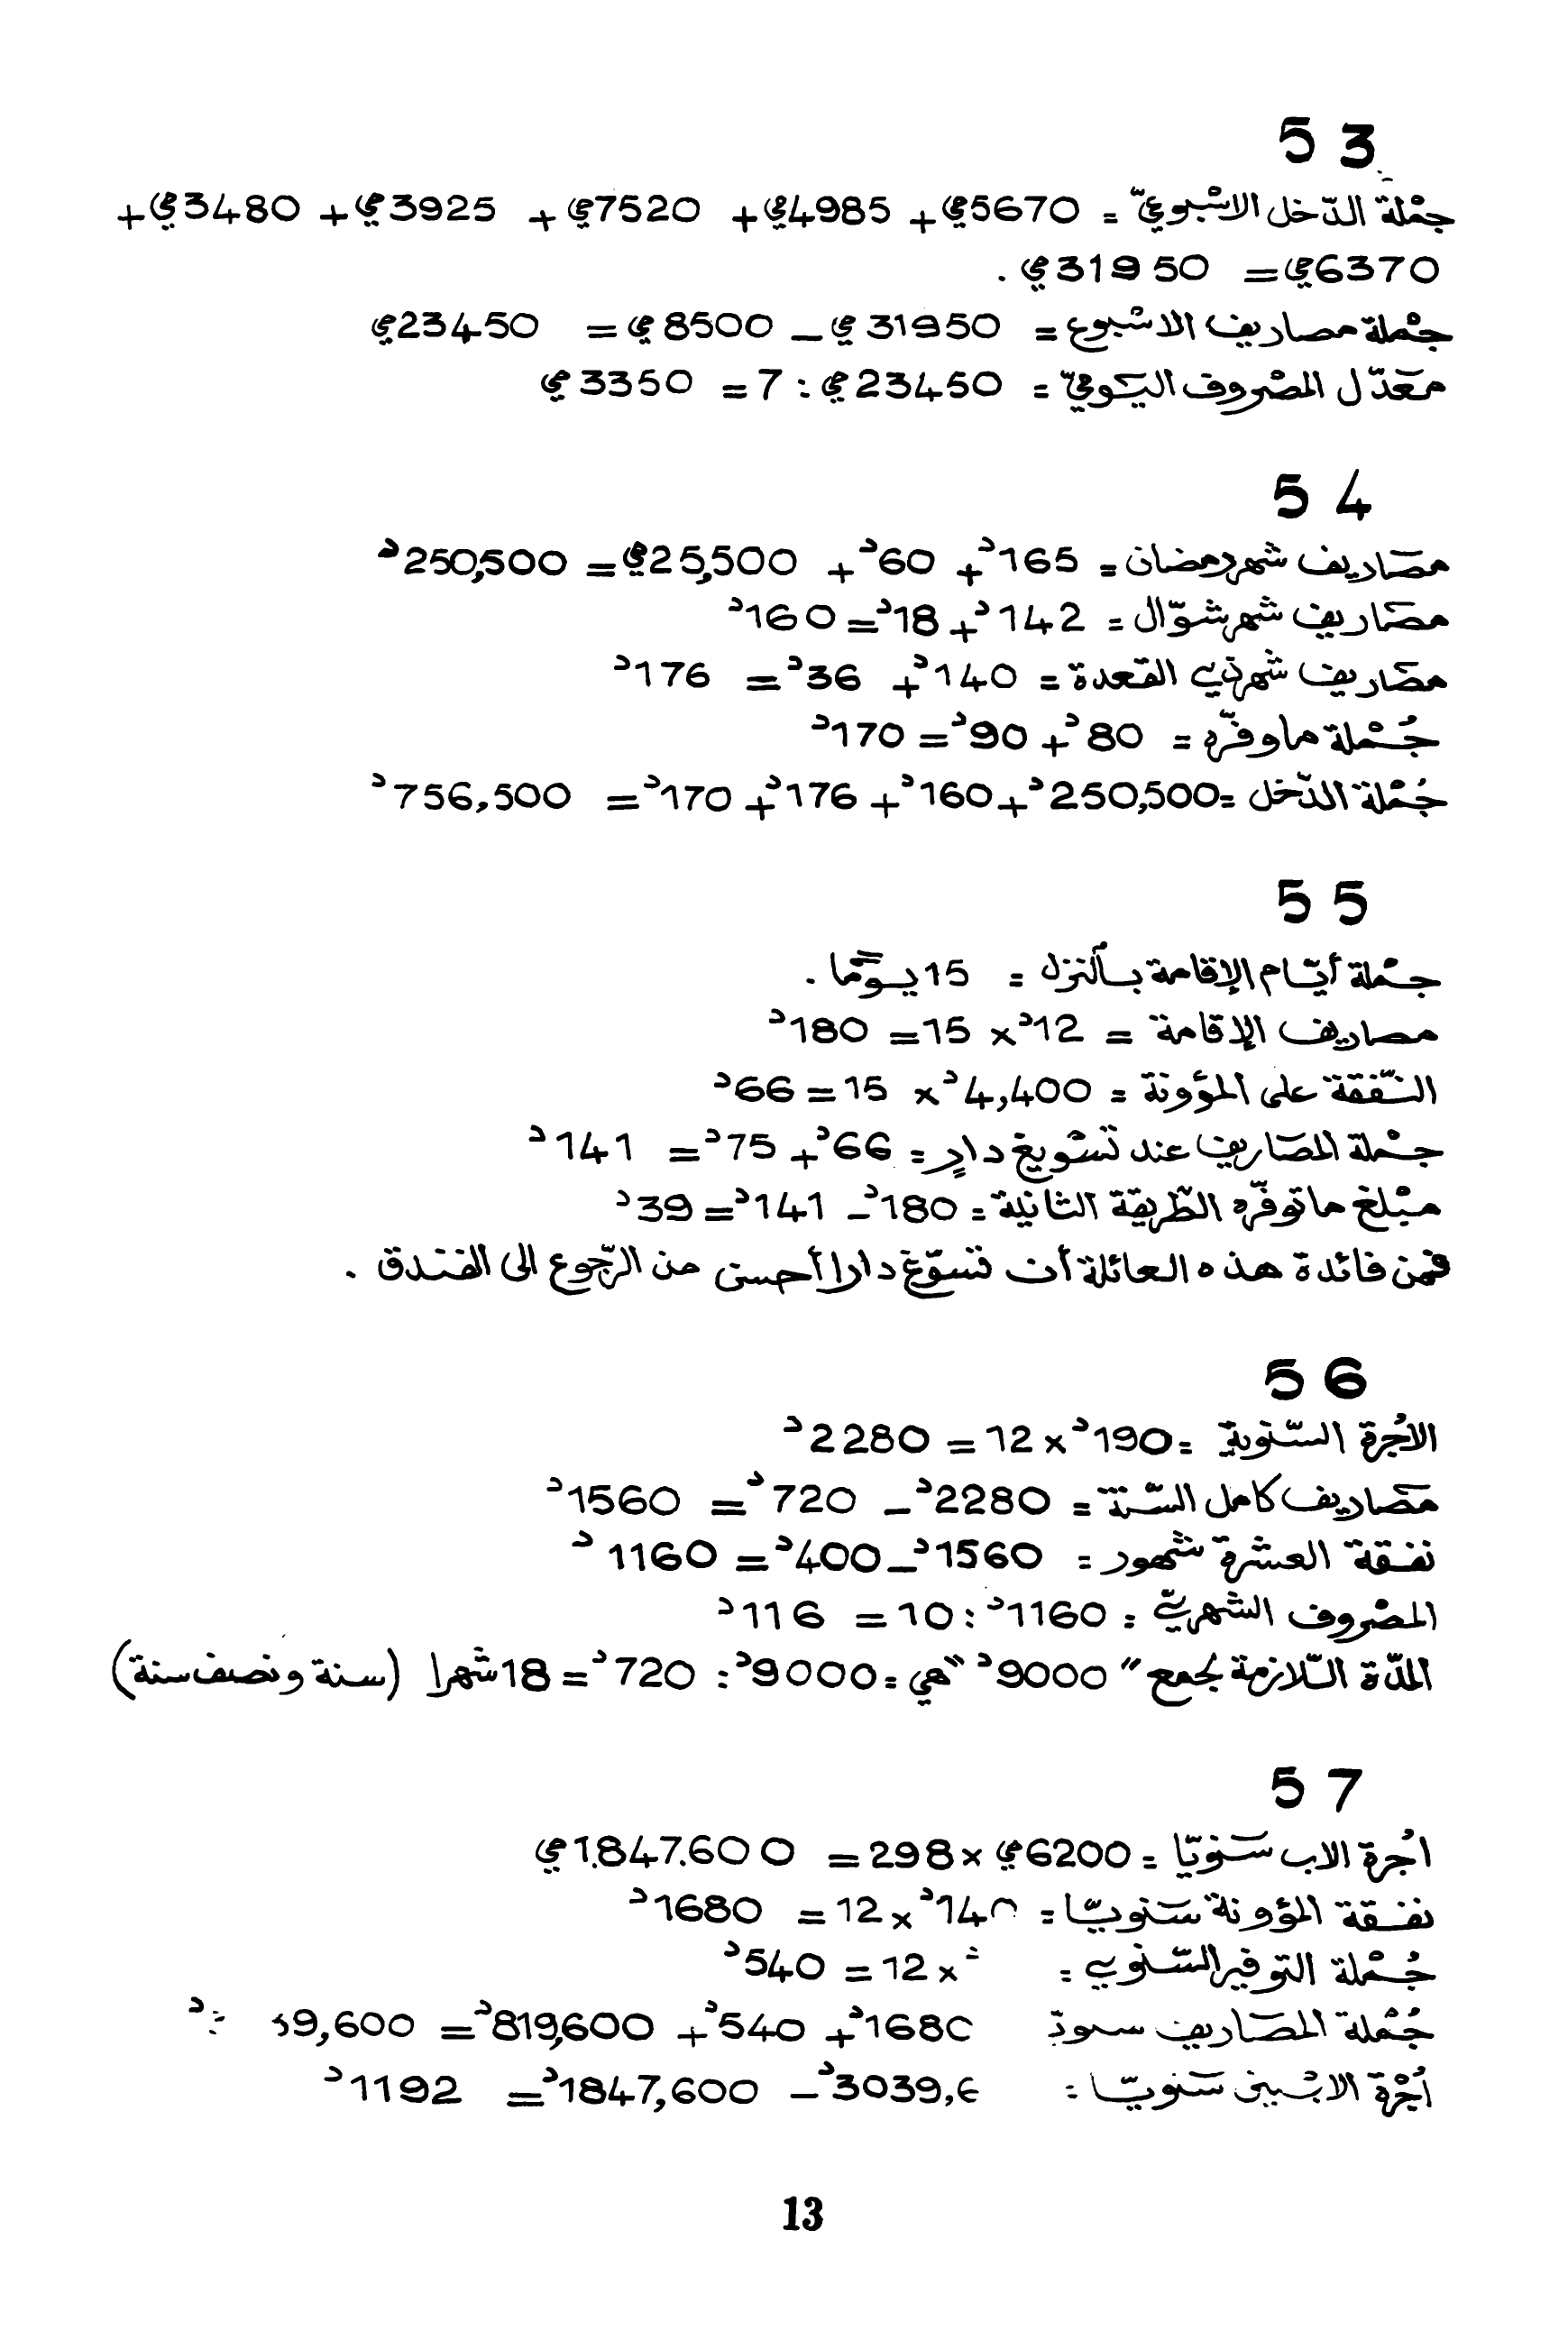 53
جمْلة الدّخل الاسْبوعيّ = 5670مي + 4985مي + 7520مي + 3925مي + 3480مي +
6370مي = 31950مي .
جمْلة مصاريف الاسْبوع = 31950مي - 8500مي = 23450مي
معَدّل المصْروف اليَوميّ = 23450مي : 7 = 3350مي
54
مصَاريف شهر رمضان = 165د + 60د + 25,500مي = 250,500د
مصَاريف شهر شوّال = 142د + 18د = 160د
مصَاريف شهر ذي القعدة = 140د + 36د = 176د
جُمْلة ما وفّره = 80د + 90د = 170د
جُمْلة الدّخل = 250,500د + 160د + 176د + 170د = 756,500د
55
جمْلة أيّام الإقامة بالنزل = 15 يوْمًا .
مصاريف الإقامة = 12د × 15 = 180د
النّفقة على المؤونة = 4,400د × 15 = 66د
جمْلة المصَاريف عند تسْويغ دارٍ = 66د + 75د = 141د
مبْلغ ما توفّره الطّريقة الثانية = 180د - 141د = 39د
فمن فائدة هذه العائلة أن تسوّغ دارا أحسن من الرّجوع الى الفندق .
56
الاُجْرة السّنويّة = 190د × 12 = 2280د
مصَاريف كامل السّنة = 2280د - 720د = 1560د
نفقة العشرة شهور = 1560د - 400د = 1160د
المصْروف الشهريّ = 1160د : 10 = 116د
المدّة اللّازمة لجمع "9000د" هي = 9000د : 720د = 18 شهرا (سنة ونصف سنة)
57
اُجْرة الاب سَنويّا = 6200مي × 298 = 1.847.600مي
نفقة المؤونة سَنويّا = 140د × 12 = 1680د
جُمْلة التوفير السّنوي = × 12 = 540د
جُمْلة المصَاريف 1680د + 540د + 819,600د = 39,600د
أُجْرة الابْنين سَنويّا = 3039,6د - 1847,600د = 1192د
13